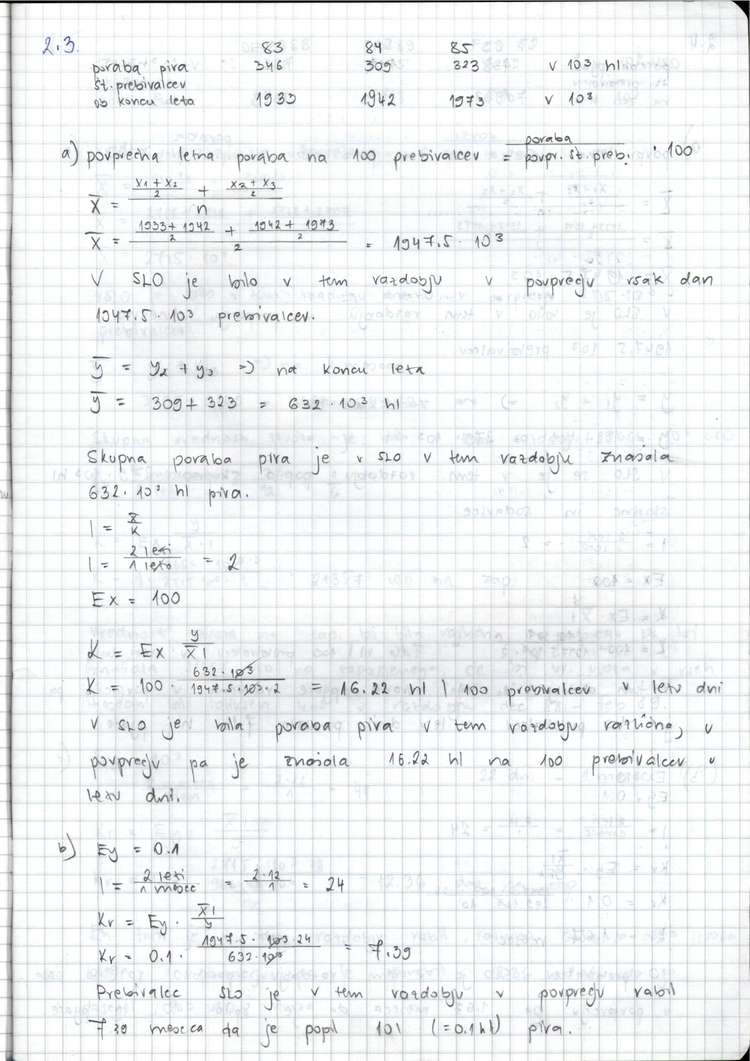 2.3. 83 84 85
poraba piva 346 309 323 v 10³ hl
št. prebivalcev
ob koncu leta 1933 1942 1973 v 10³
a) povprečna letna poraba na 100 prebivalcev = poraba / povpr. št. preb. · 100
X̄ = ((x₁ + x₂)/2 + (x₂ + x₃)/2) / n
X̄ = ((1933 + 1942)/2 + (1942 + 1973)/2) / 2 = 1947.5 · 10³
V SLO je bilo v tem razdobju v povprečju vsak dan
1947.5 · 10³ prebivalcev.
ȳ = y₂ + y₃ => na koncu leta
ȳ = 309 + 323 = 632 · 10³ hl
Skupna poraba piva je v SLO v tem razdobju znašala
632 · 10³ hl piva.
l = X̄/K
l = 2 leti / 1 leto = 2
Ex = 100
K = Ex y / X̄l
K = 100 · 632 · 10³ / 1947.5 · 10³ · 2 = 16.22 hl | 100 prebivalcev v letu dni
V SLO je bila poraba piva v tem razdobju različna, v
povprečju pa je znašala 16.22 hl na 100 prebivalcev v
letu dni.
b) Ey = 0.1
l = 2 leti / 1 mesec = 2 · 12 / 1 = 24
Kr = Ey · X̄l / y
Kr = 0.1 · 1947.5 · 10³ · 24 / 632 · 10³ = 7.39
Prebivalec SLO je v tem razdobju v povprečju rabil
7.39 meseca da je popil 10l (=0.1hl) piva.